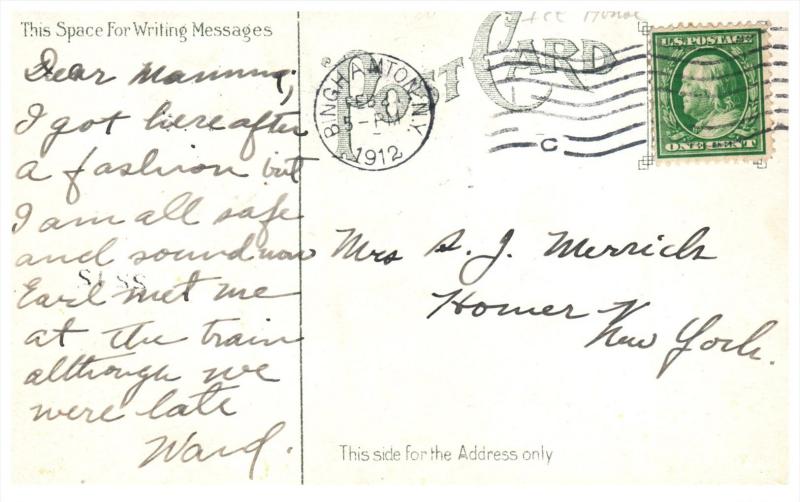 This Space For Writing Messages
Dear Mamma,
I got here after
a fashion but
I am all safe
and sound now
Earl met me
at the train
although we
were late
Ward.
SISS
POST CARD
BINGHAMTON, N.Y.
FEB
5 - PM
1912
C
U.S. POSTAGE
ONE CENT
Mrs S. J. Merrick
Homer
New York.
This side for the Address only